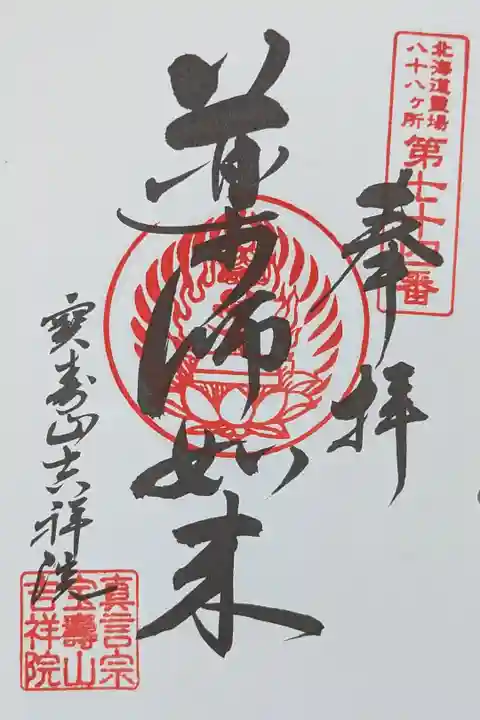 北海道靈場
八十八ヶ所
第七十四番
奉拝
師如来
寳寿山吉祥院
真言宗
宝壽山
吉祥院